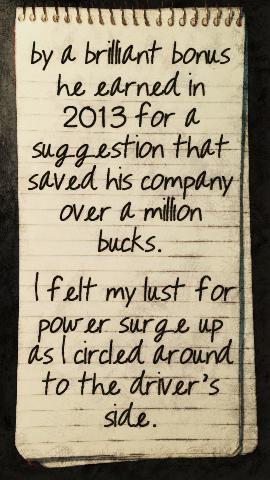 by a brilliant bonus
he earned in
2013 for a
suggestion that
saved his company
over a million
bucks.
I felt my lust for
power surge up
as I circled around
to the driver's
side.